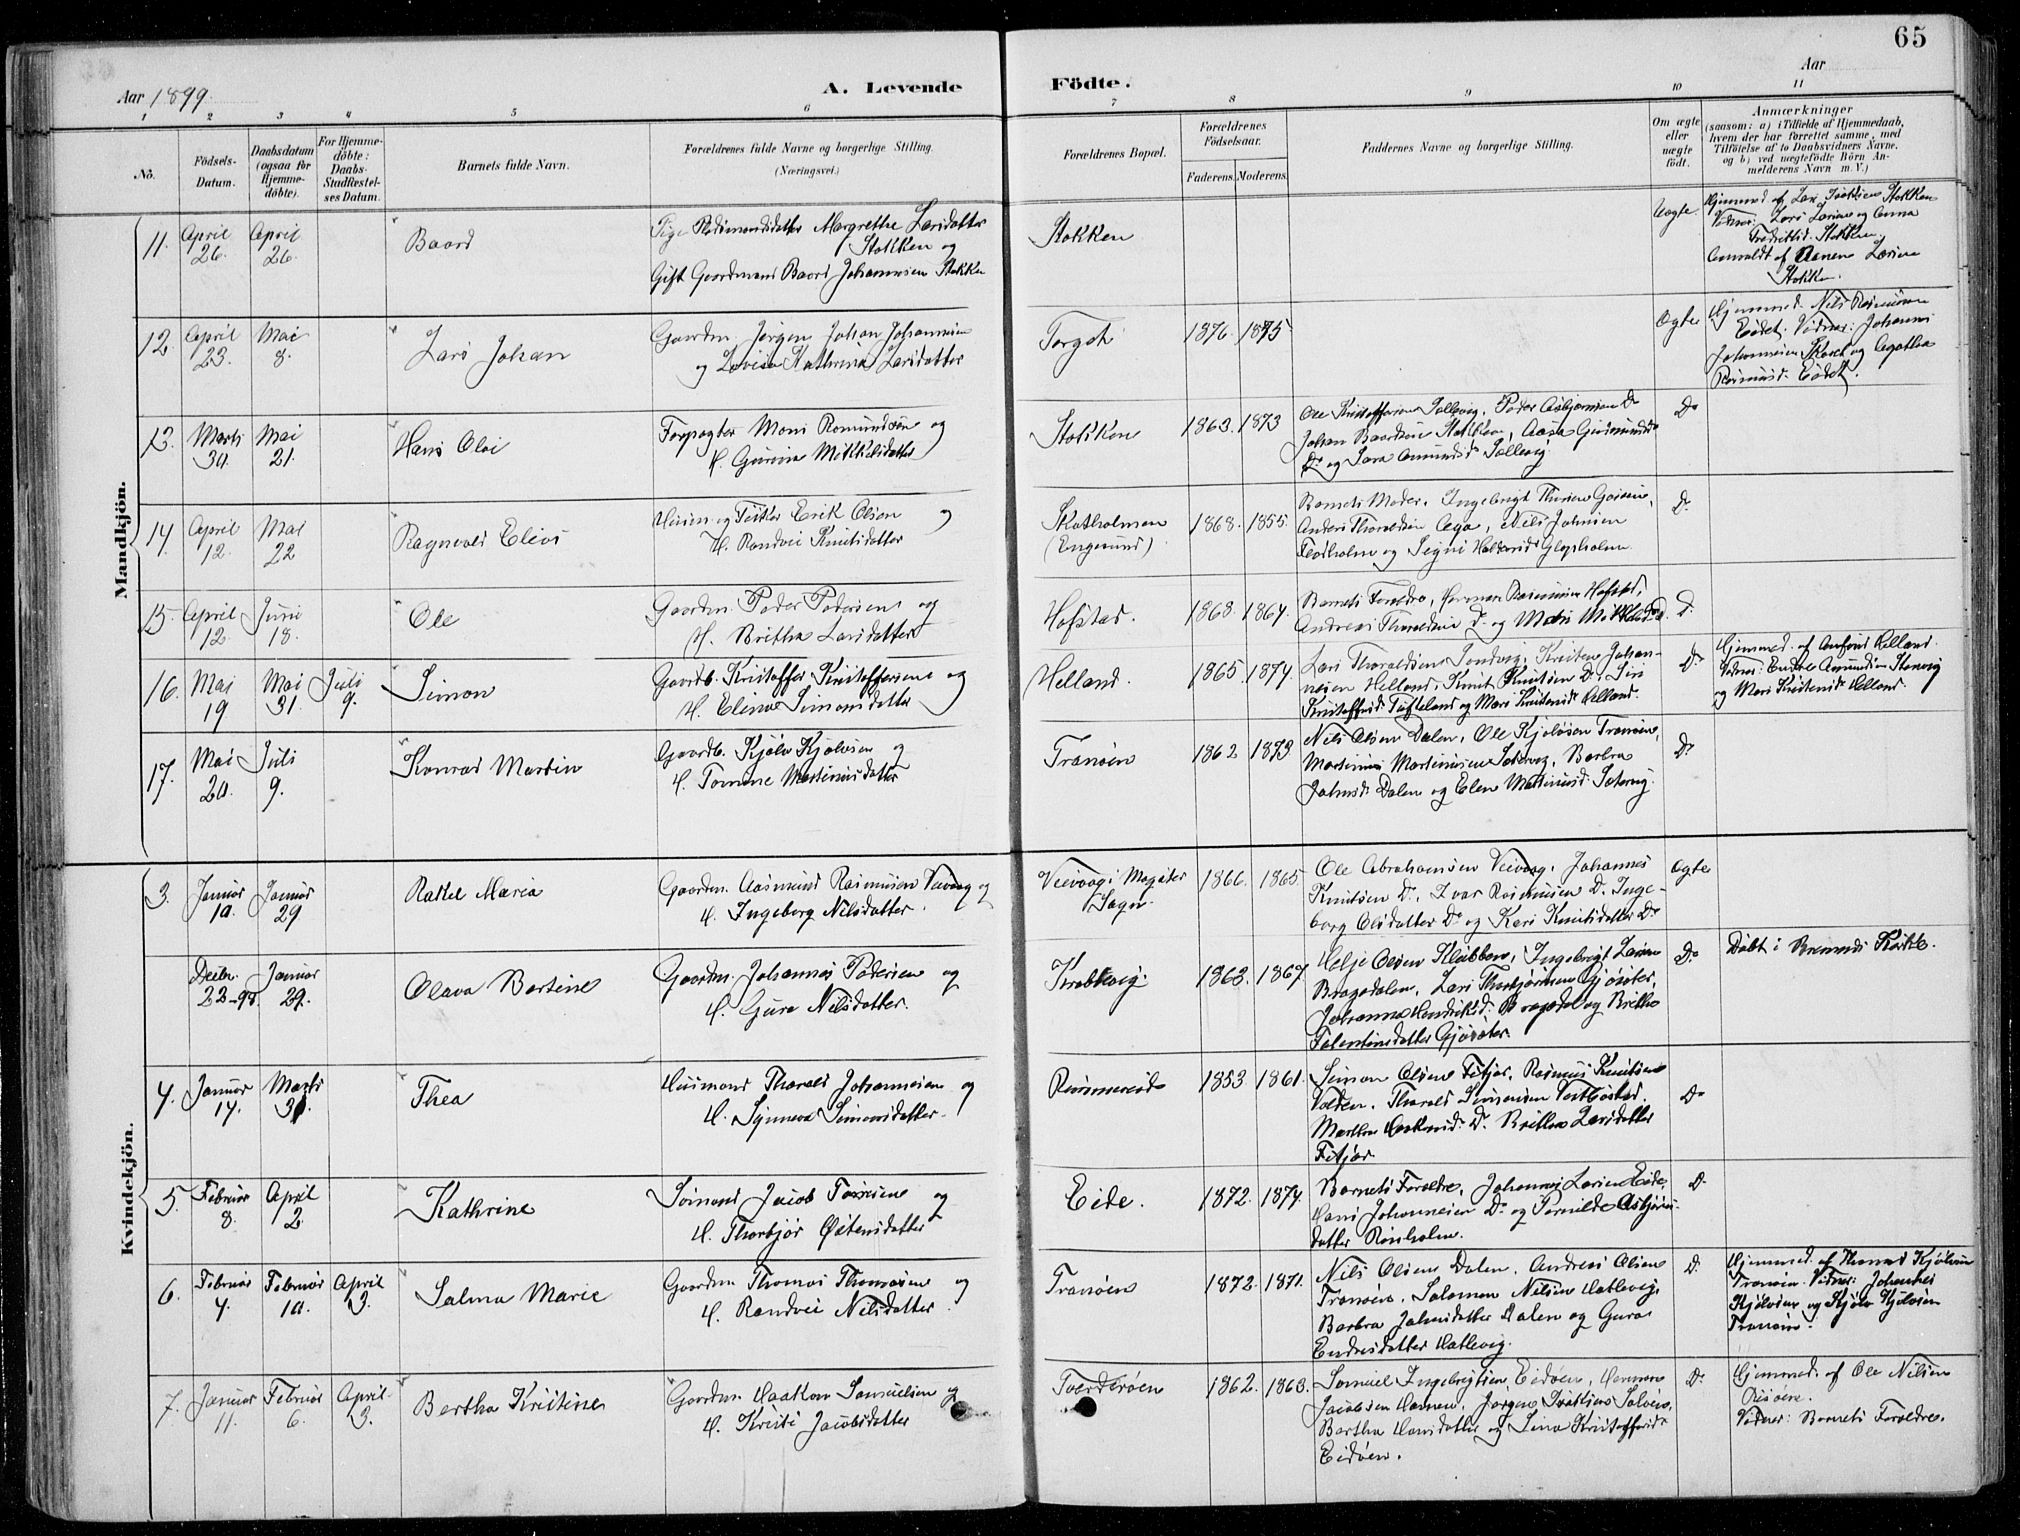 65
Aar 1899
A. Levende Födte.
Aar
1 2 3 4 5 6 7 8 9 10 11
No.
Födsels-
Datum.
Daabsdatum
(ogsaa for
Hjemme-
döbte).
For Hjemme-
döbte:
Daabs-
Stadfæstel-
ses Datum.
Barnets fulde Navn.
Forældrenes fulde Navne og borgerlige Stilling.
(Næringsvei.)
Forældrenes Bopæl.
Forældrenes
Födselsaar.
Faderens. Moderens.
Faddernes Navne og borgerlige Stilling.
Om ægte
eller
uægte
födt.
Anmærkninger
(saasom: a) i Tilfælde af Hjemmedaab,
hvem der har forrettet samme, med
Tilföielse af to Daabsvidners Navne,
og b) ved uægtefödte Börn An-
melderens Navn m. V.)
Mandkjön.
11. April 26. April 26. Baard
Pige Margrethe Larsdatter
Stokken og
Gift Gaardmand Baard Johannesen Stokken
Stokken
Uægte.
Hjemmed. af Lars Stokken
Vidner: Lars Larsen og Anna
Stokken.
Anmeldt af Larsen
Stokken.
12. April 23. Mai 8. Lars Johan
Gaardm. Jørgen Johan Johannesen
og Lovise Kathrine Larsdatter
1876. 1875
Ægte
Hjemmed. Nils Rasmussen
Eidet. Vidner: Johannes
Johannesen og Agathe
Rasmusd. Eidet.
13. Marts 30. Mai 21. Hans Olai
Forpagter Mons Romundsen og
H. Gurine Mikkelsdatter
Stokken
1863. 1873
Ole Kristoffersen Sollevig, Peder Asbjørnsen Do
Johan Baardsen Stokken, Aasa Gudmundsd.
Do og Sara Amundsd. Sollevig
Do
14. April 12. Mai 22 Ragnvald Elias
Husm. og Fisker Erik Olsen og
H. Randvei Knutsdatter
Skatholmen
(Engesund)
1868. 1855.
Barnets Moder, Ingebrigt Thorsen
Anders Thoraldsen Aga, Nils Johnsen
Flatholm og Signi Haldorsd. Glopholm.
D.
15. April 12. Juni 18. Ole
Gaardm. Peder Pedersen og
H. Britha Larsdatter
Hofstad.
1868. 1864.
Barnets Forældre, Herman Rasmussen Hofstad,
Andreas Thoraldsen D. og Mari Mikkelsd. D.
D.
16. Mai 19 Mai 31. Juli 9. Simon
Gaardb. Kristoffer Kristoffersen og
H. Eline Simonsdatter
Helland.
1865. 1874.
Lars Thoraldsen Sandvig, Kristen Johan-
nesen Helland, Knut Knutsen D. Siri
Kristoffersd. Tufteland og Mari Kristensd. Helland.
Do
Hjemmed. af Amfind Helland.
Vidner: Endre Amundsen Stenvig
og Mari Kristensd. Helland.
17. Mai 20. Juli 9. Konrad Martin
Gaardb. Kjølv Kjølvsen og
H. Tomine Martinusdatter
Tranøen
1862 1873.
Nils Olsen Dalen, Ole Kjølvsen Tranøen,
Martinus Martinusen Sætervig, Barbra
Johnsd. Dalen og Elen Martinusd. Sætervig.
Do
Kvindekjön.
3. Januar 10. Januar 29 Rakel Maria
Gaardm. Aasmund Rasmussen Veivaag og
H. Ingeborg Nilsdatter.
Veivaag i Møgster
Sogn.
1866. 1865.
Ole Abrahamsen Veivaag, Johannes
Knutsen D. Ivar Rasmussen D. Inge-
borg Olsdatter Do og Kari Knutsdatter Do
Ægte
Decbr. 22-98. Januar 29. Olava Bertine
Gaardm. Johannes Pedersen og
H. Guro Nilsdatter.
Krabbevig.
1863. 1867.
Helje Olsen Klubben, Ingebrigt Larsen
Bragedalen, Lars Thorbjørnsen Gjøsæter,
Johanna Hendriksd. Bragedal og Britha
Falentinsdatter Gjøsæter.
Do
Døbt i Bremnes Kirke.
4. Januar 14. Marts 31. Thea
Husmand Thorald Johannesen og
H. Synneva Simonsdatter.
Rimmereid
1853 1861.
Simon Olsen Fitjar, Rasmus Knutsen
Volden, Thorald Simonsen Vestbøstad.
Martha Haaknsd. D. Britha Larsdatter
Fitjar
Do
5. Februar 8. April 2. Kathrine
Sømand Jacob Tørresen og
H. Thorbjør Østensdatter
Eide.
1872. 1874.
Barnets Forældre, Johannes Larsen Eide,
Hans Johannesen D. og Pernilde Asbjørns-
datter Risholm.
D.
6. Februar 4. Februar 10. April 3. Salma Marie
Gaardm. Thomas Thomasen og
H. Randvei Nilsdatter.
Tranøen
1872. 1871.
Nils Olsen Dalen, Andreas Olsen
Tranøen, Salomon Nilsen Hatlevig,
Barbra Johnsdatter Dalen og Guro
Endresdatter Hatlevig.
D.
Hjemmed. af Thomas Kjølvsen
Tranøen. Vidner: Johannes
Kjølvsen og Kjølv Kjølvsen
Tranøen.
7. Januar 11. Februar 6. April 3. Bertha Kristine
Gaardm. Haakon Samuelsen og
H. Kristi Jacobsdatter
Tverderøen
1862. 1863.
Samuel Ingebrigtsen Eidøen, Herman
Jacobsen Hannøen, Jørgen Salvøen,
Bertha Hansdatter og Sina Kristoffersd.
Eidøen.
D.
Hjemmed. af Ole Nilsen
Risøen.
Vidner: Barnets Forældre.